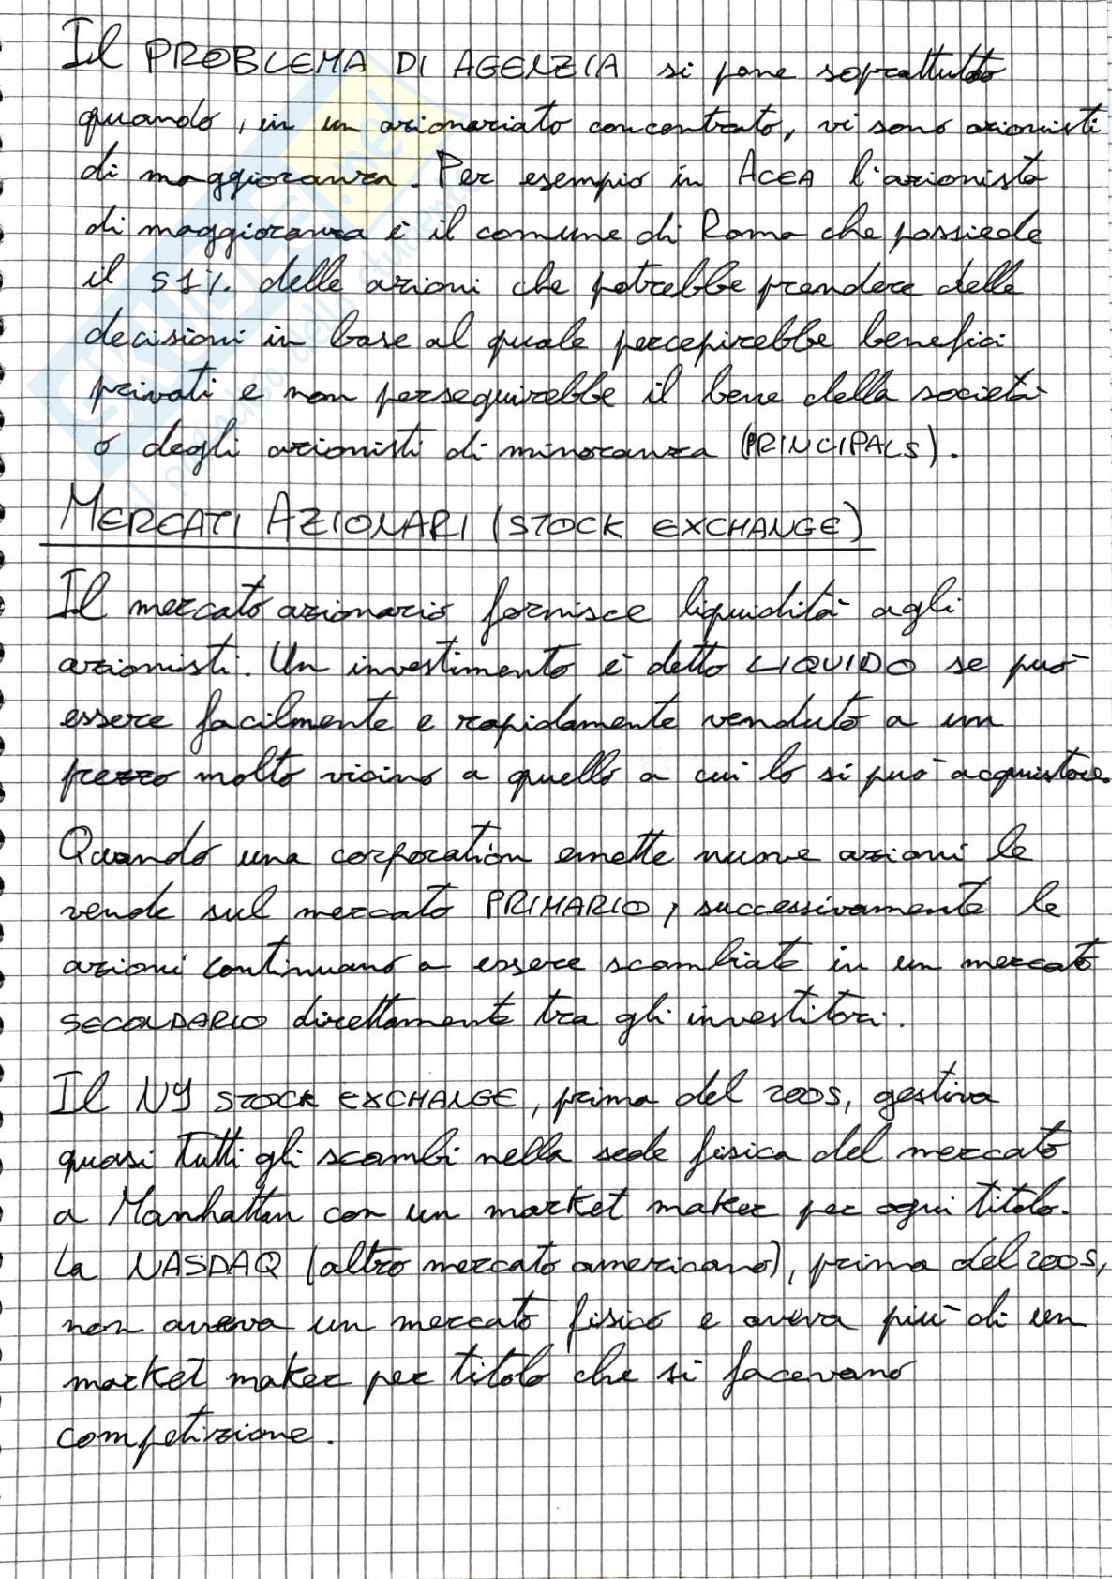 Il PROBLEMA DI AGENZIA si pone soprattutto
quando, in un azionariato concentrato, vi sono azionisti
di maggioranza. Per esempio in ACEA l'azionista
di maggioranza è il comune di Roma che possiede
il 51%. delle azioni che potrebbe prendere delle
decisioni in base al quale percepirebbe benefici
privati e non perseguirebbe il bene della società
o degli azionisti di minoranza (PRINCIPALS).
MERCATI AZIONARI (STOCK EXCHANGE)
Il mercato azionario fornisce liquidità agli
azionisti. Un investimento è detto LIQUIDO se può
essere facilmente e rapidamente venduto a un
prezzo molto vicino a quello a cui lo si può acquistare.
Quando una corporation emette nuove azioni le
vende sul mercato PRIMARIO, successivamente le
azioni continuano a essere scambiate in un mercato
SECONDARIO direttamente tra gli investitori.
Il NY STOCK EXCHANGE, prima del 2005, gestiva
quasi tutti gli scambi nella sede fisica del mercato
a Manhattan con un market maker per ogni titolo.
La NASDAQ (altro mercato americano), prima del 2005,
non aveva un mercato fisico e aveva più di un
market maker per titolo che si facevano
competizione.